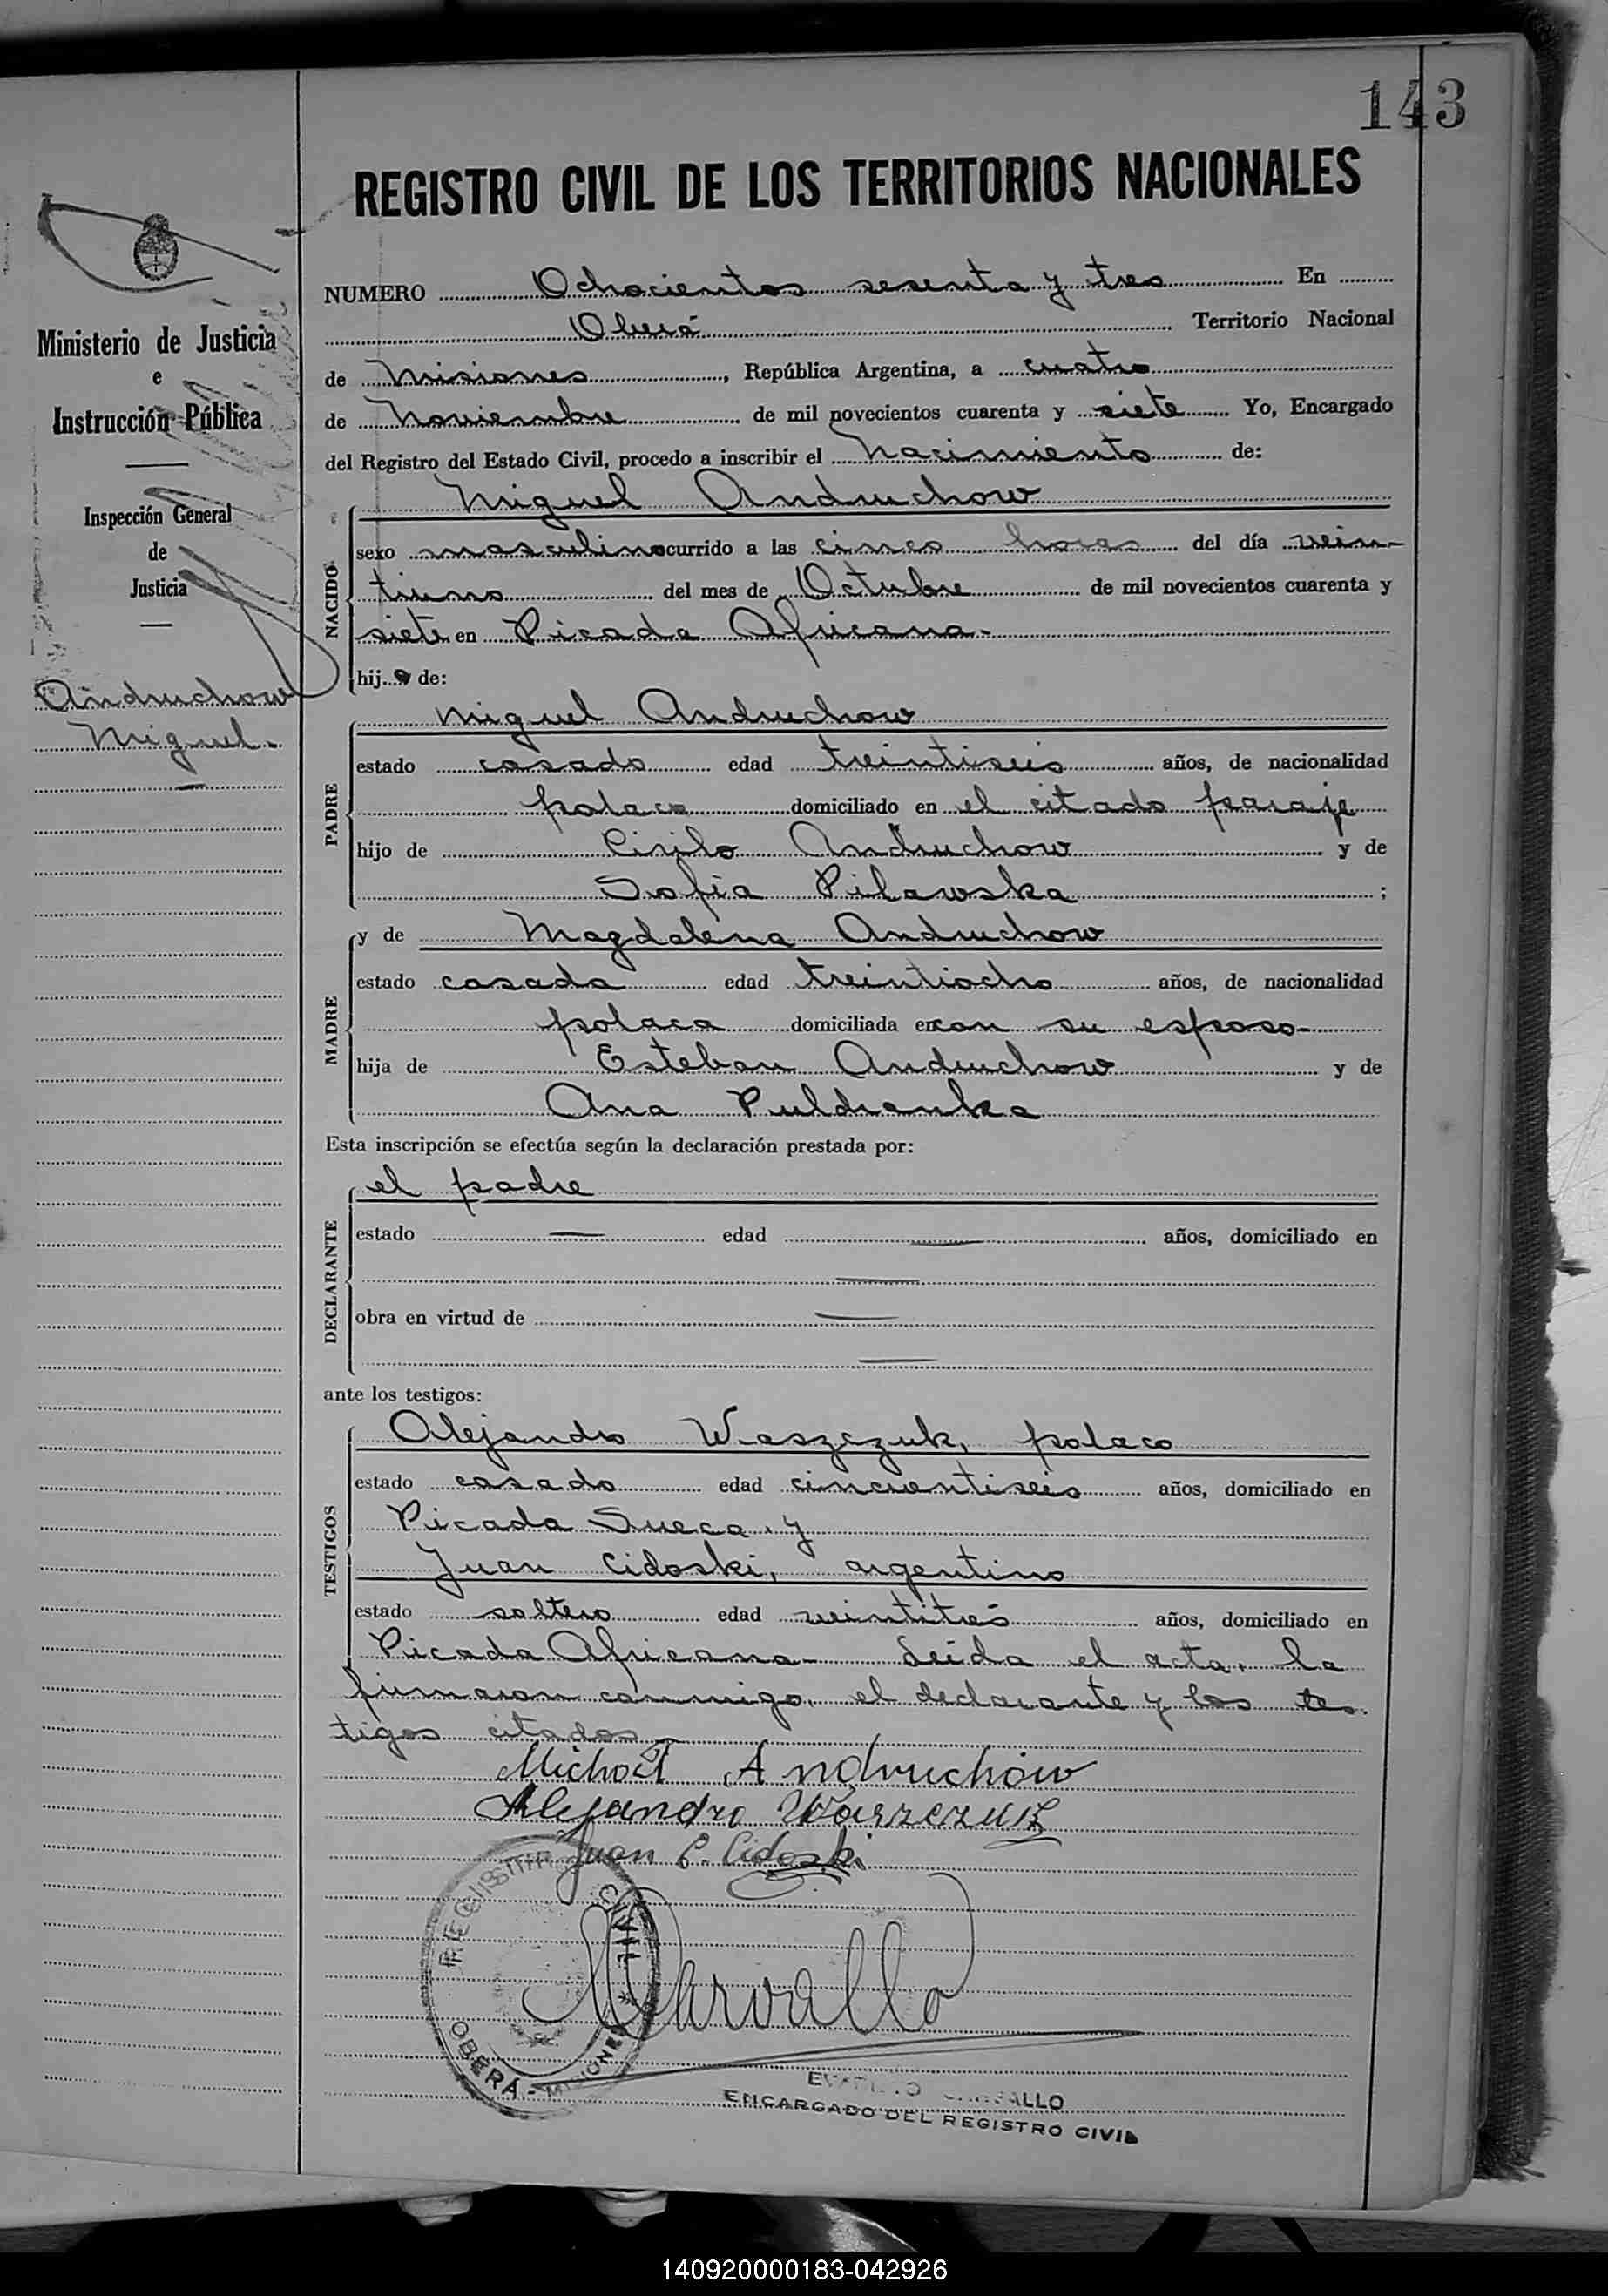 143
REGISTRO CIVIL DE LOS TERRITORIOS NACIONALES
Ministerio de Justicia
e
Instrucción Pública
Inspección General
de
Justicia
Andruchow
Miguel.
NUMERO Ochocientos sesenta y tres En
Oberá Territorio Nacional
de Misiones, República Argentina, a cuatro
de Noviembre de mil novecientos cuarenta y siete Yo, Encargado
del Registro del Estado Civil, procedo a inscribir el Nacimiento de:
Miguel Andruchow
NACIDO
sexo masculino ocurrido a las cinco horas del día vein-
tiuno del mes de Octubre de mil novecientos cuarenta y
siete en Picada Africana.-
hijo de:
Miguel Andruchow
PADRE
estado casado edad treintiseis años, de nacionalidad
polaco domiciliado en el citado paraje
hijo de Cirilo Andruchow y de
Sofia Pilawska ;
y de Magdalena Andruchow
MADRE
estado casada edad treintiocho años, de nacionalidad
polaca domiciliada en con su esposo-
hija de Esteban Andruchow y de
Ana
Esta inscripción se efectúa según la declaración prestada por:
el padre
DECLARANTE
estado — edad — años, domiciliado en
—
obra en virtud de —
—
ante los testigos:
Alejandro Waszczuk, polaco
TESTIGOS
estado casado edad cincuentiseis años, domiciliado en
Picada Sueca, y
Juan Cidoski, argentino
estado soltero edad veintitrés años, domiciliado en
Picada Africana- Leída el acta, la
firmaron conmigo, el declarante y los tes-
tigos citados
Michał Andruchów
Alejandro Waszczuk
Juan P. Cidoski
REGISTRO CIVIL * OBERÁ - MISIONES
Carvallo
ENCARGADO DEL REGISTRO CIVIL
140920000183-042926